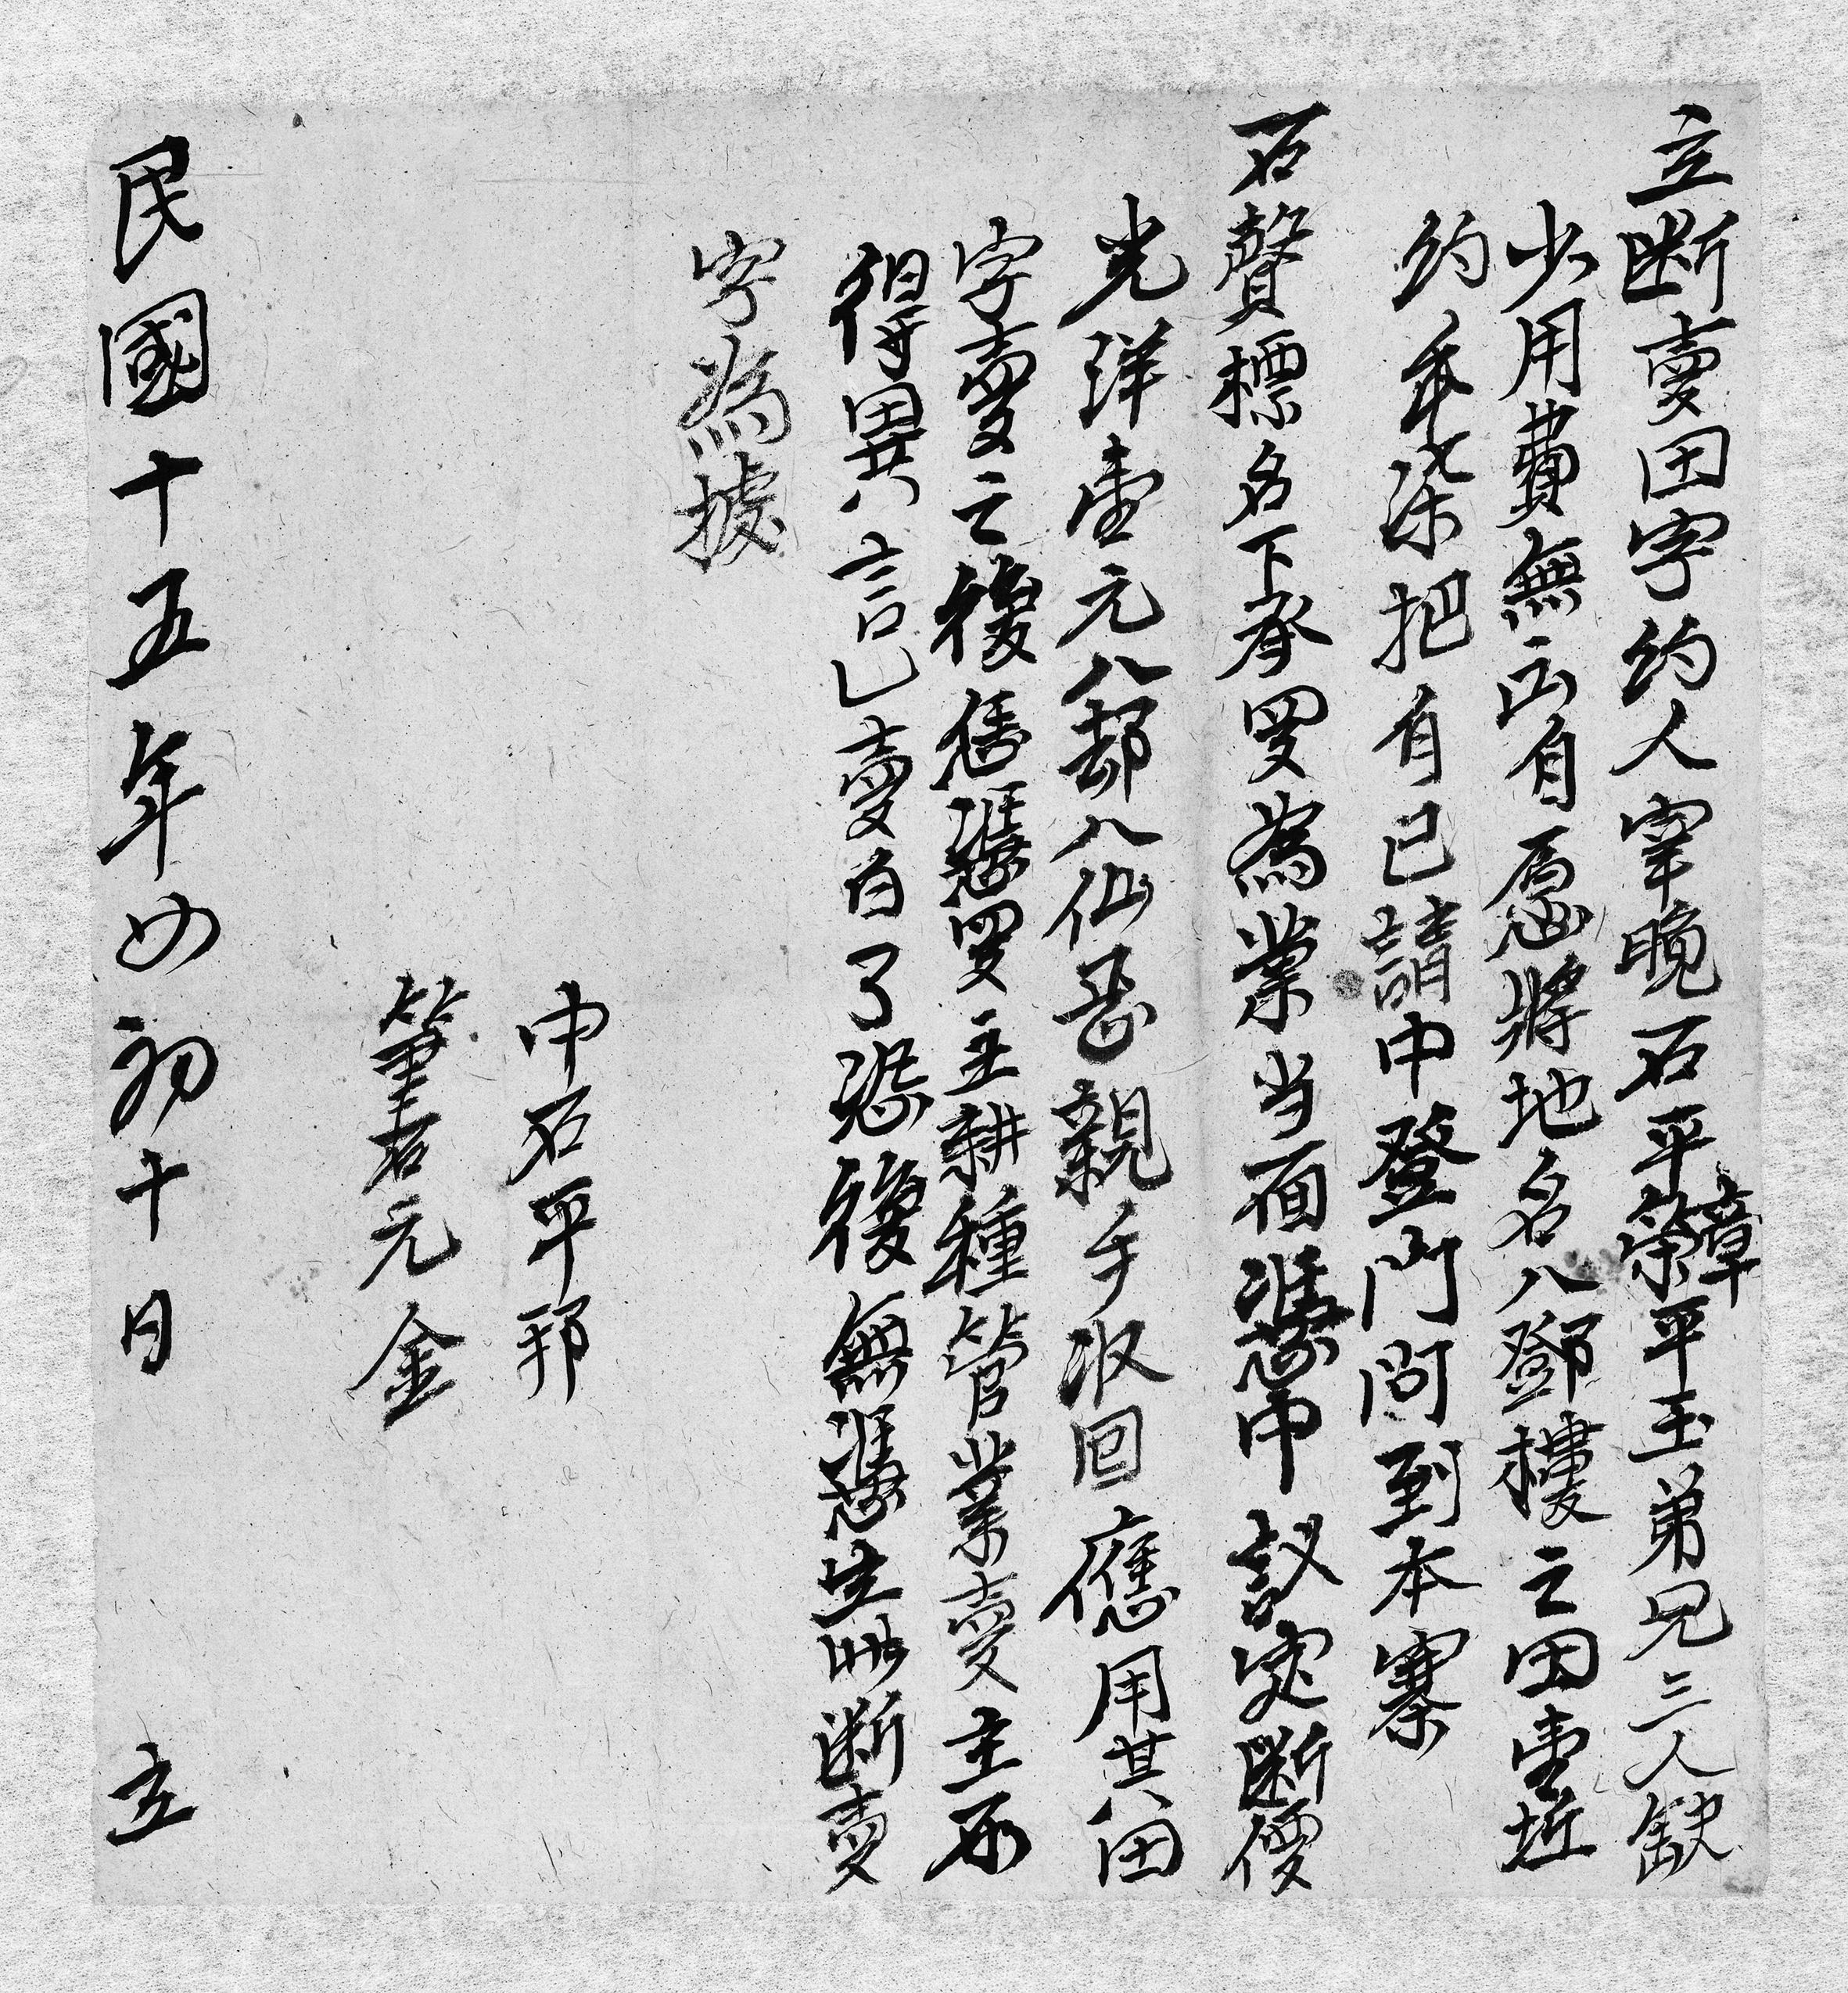 立断賣田字約人宰晚石平榮璋平玉弟兄三人缺
少用費無出自愿將地名八鄧樓之田壹坵
約禾柒把自己請中登門問到本寨
石贊標名下承買為業当面憑中議定断價
光洋壹元八卻八仙㱕親手收回應用其田
字賣之後恁憑買主耕種管業賣主不
得異言已賣自了恐後無憑生此断賣
字為據
中石平邦
筆石元金
民國十五年四初十日 立